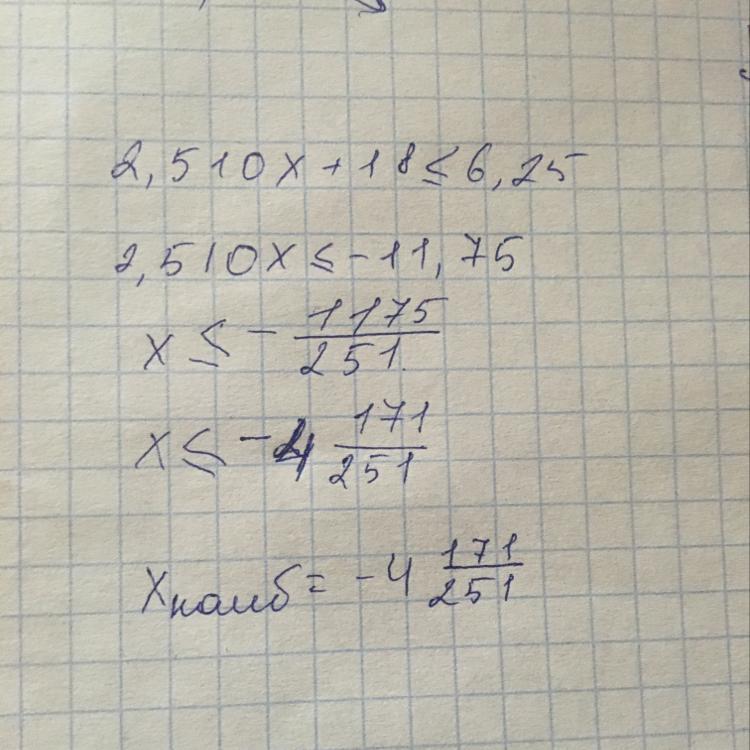 2,510x + 18 ≤ 6,25
2,510x ≤ -11,75
x ≤ - 1175/251
x ≤ -4 171/251
xнаиб = -4 171/251